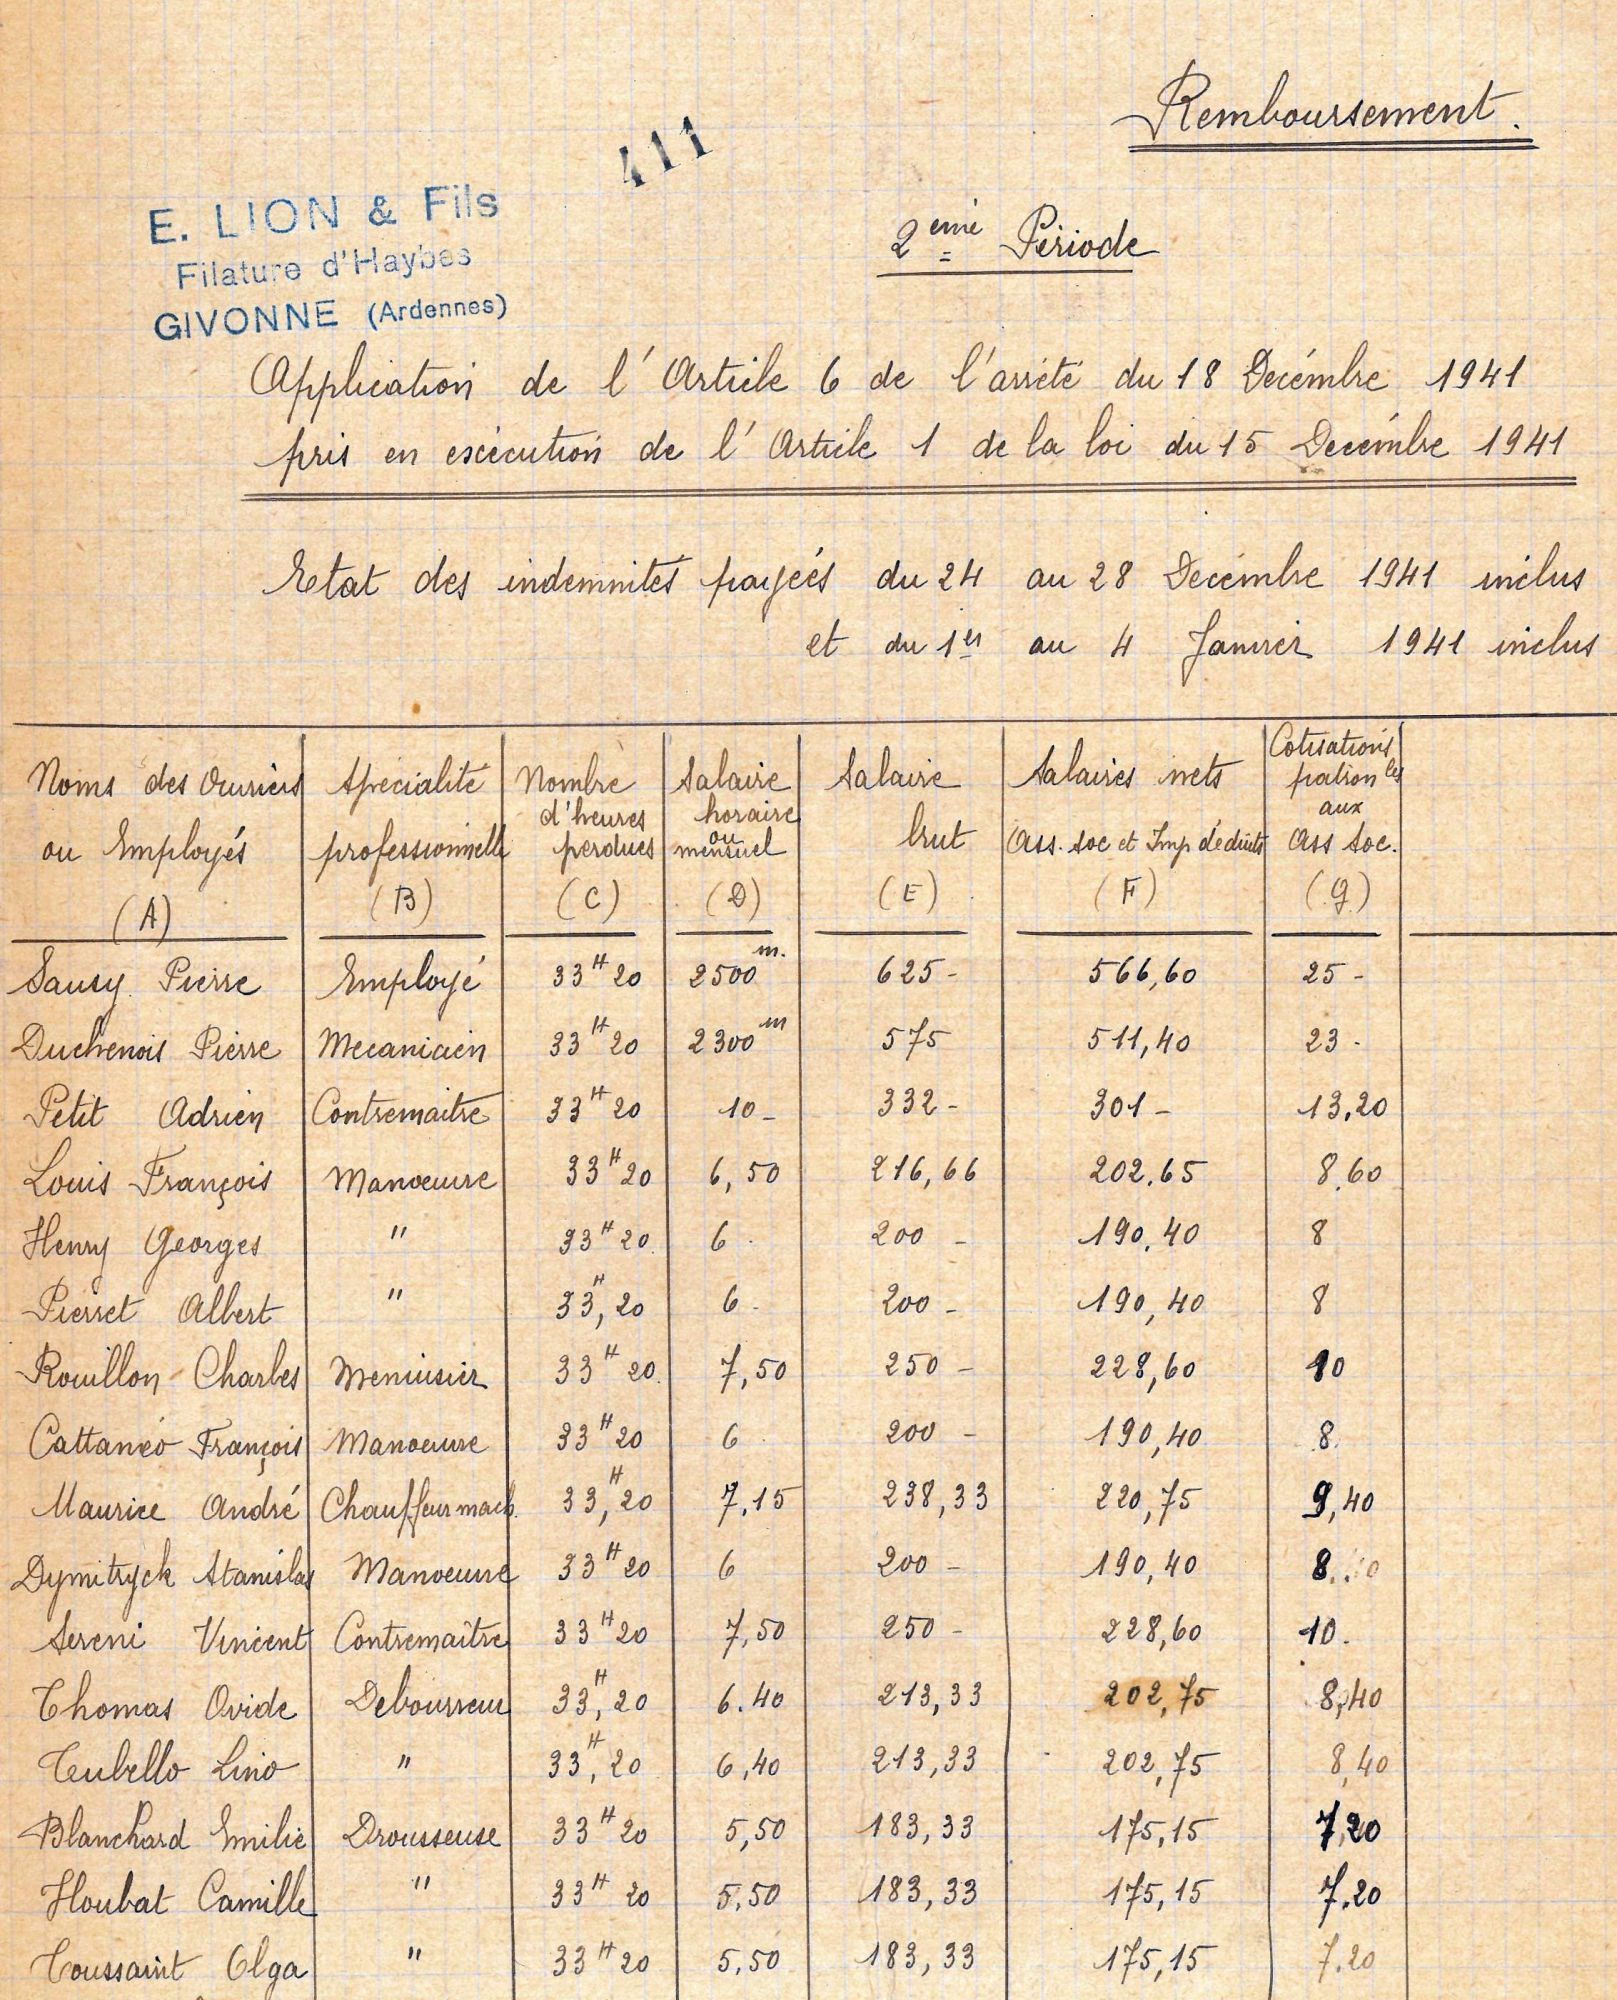 Remboursement.
411
E. LION & Fils
Filature d'Haybes
GIVONNE (Ardennes)
2ème Période
Application de l'Article 6 de l'arrété du 18 Décémbre 1941
pris en exécution de l'Article 1 de la loi du 15 Decémbre 1941
Etat des indemnités payéés du 24 au 28 Decémbre 1941 inclus
et du 1er au 4 Janvier 1941 inclus
Noms des Ouvriers ou Employés (A) | Spécialité professionnelle (B) | Nombre d'heures perdues (C) | Salaire horaire ou mensuel (D) | Salaire brut (E) | Salaires nets Ass. Soc et Imp déduits (F) | Cotisations patron les aux Ass Soc. (G)
Sausy Pierre Employé 33H20 2500 m. 625- 566,60 25-
Duchenois Pierre Mecanicien 33H20 2300 m 575 511,40 23-
Petit Adrien Contremaitre 33H20 10- 332- 301- 13,20
Louis François Manoeuvre 33H20 6,50 216,66 202.65 8,60
Henry Georges " 33H20 6 200- 190,40 8
Pierret Albert " 33H,20 6- 200- 190,40 8
Rouillon Charles Menuisier 33H20 7,50 250- 228,60 10
Cattanéo François Manoeuvre 33H20 6 200- 190,40 8
Maurice André Chauffeur mach. 33H,20 7,15 238,33 220,75 9,40
Dymitryck Stanislas Manoeuvre 33H20 6 200- 190,40 8
Sereni Vincent Contremaître 33H20 7,50 250- 228,60 10.
Thomas Ovide Debourreur 33H,20 6.40 213,33 202,75 8,40
Cubello Lino " 33H,20 6,40 213,33 202,75 8,40
Blanchard Emilie Drousseuse 33H20 5,50 183,33 175,15 7,20
Houbat Camille " 33H20 5,50 183,33 175,15 7.20
Toussaint Olga " 33H20 5,50 183,33 175,15 7.20